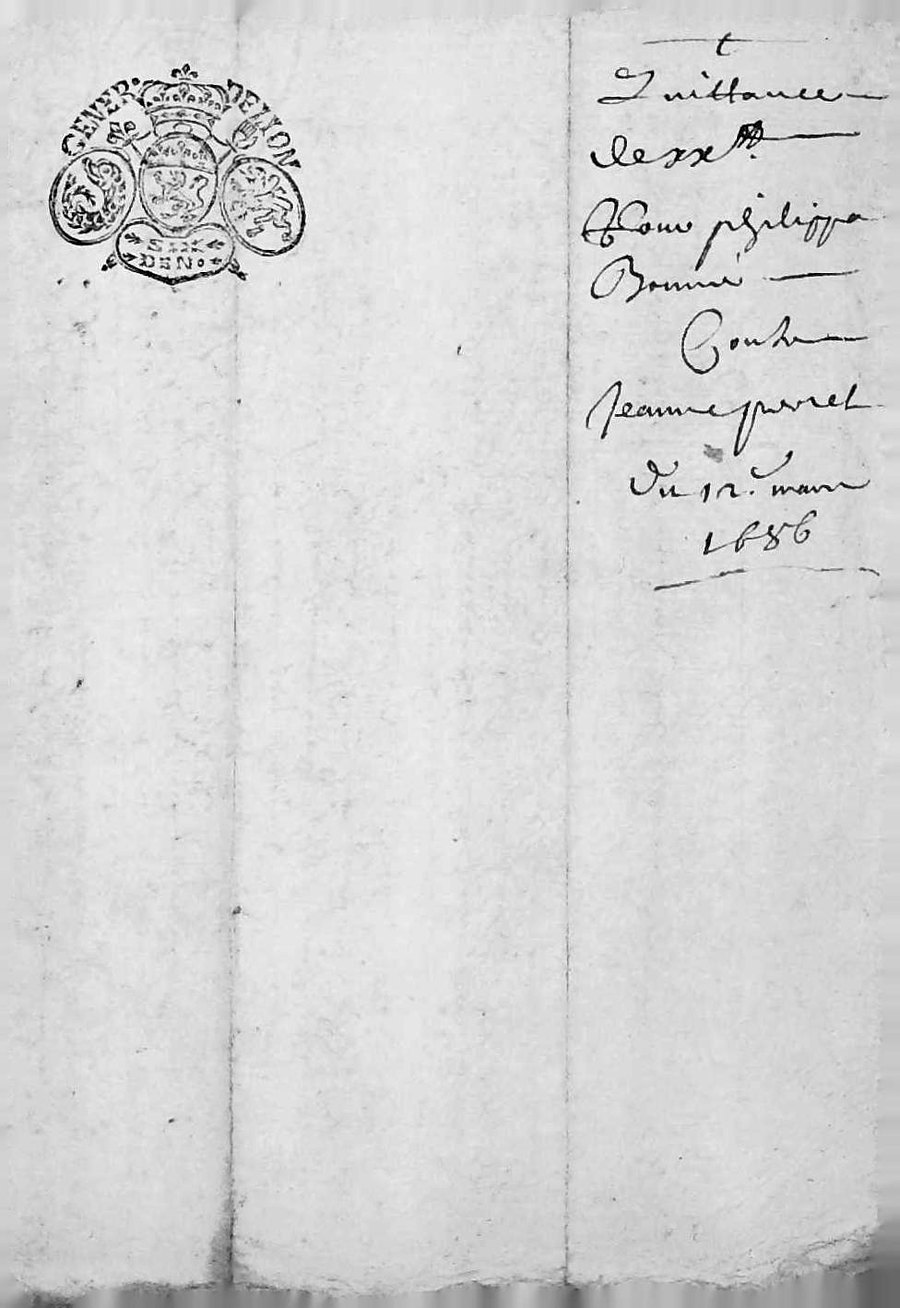 GENER. DE LION
SIX
DEN.
t
Quittance
de xx ₶.
Pour philippa
Bonnié
Contre
Jeanne perret
Du 12. mars
1686